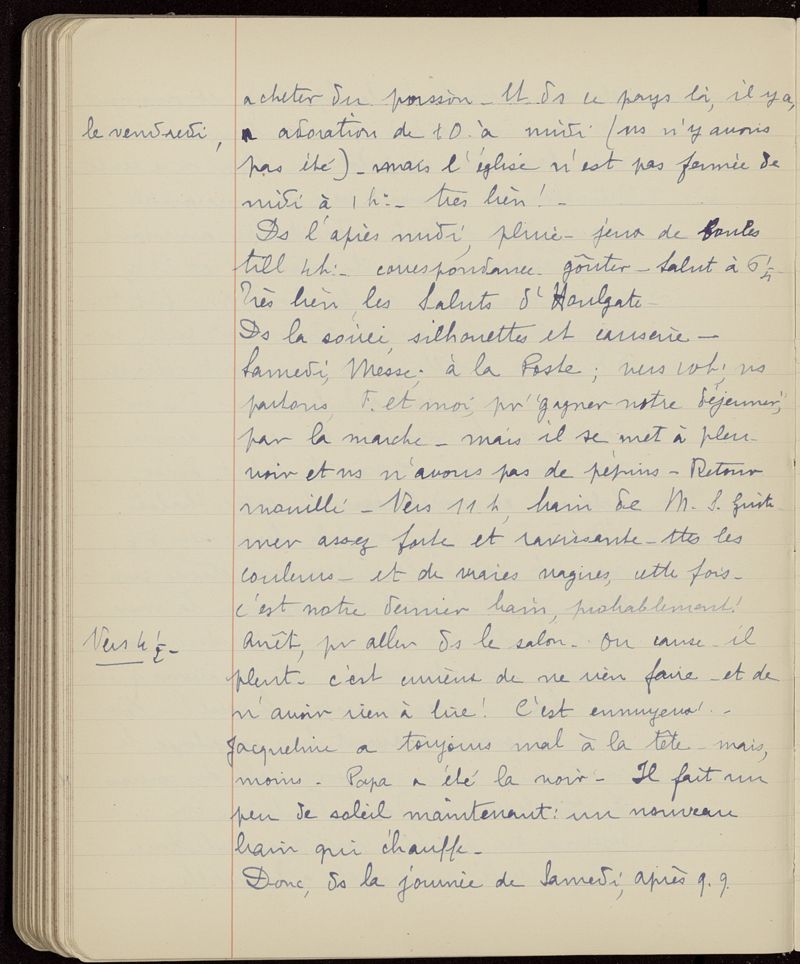 acheter du poisson - Et ds ce pays là, il y a,
le vendredi, adoration de 10 à midi (ns n'y avons
pas été) - mais l'église n'est pas fermée de
midi à 1 h: - très bien! -
Ds l'après midi, pluie - jeux de boules
till 4h: - correspondance - goûter - Salut à 6 1/2
Très bien, les Saluts d'Houlgate -
Ds la soirée, silhouettes et causerie -
Samedi, Messe; à la Poste; vers 10h; ns
partons, F. et moi, pr "gagner notre déjeuner",
par la marche - mais il se met à pleu-
voir et ns n'avons pas de pépins - Retour
mouillé - Vers 11 h, bain de M. S.
mer assez forte et ravissante - ttes les
couleurs - et de vraies vagues, cette fois -
c'est notre dernier bain, probablement!
Vers 4 1/2 -
Arrêt, pr aller ds le salon - On cause - il
pleut - c'est curieux de ne rien faire - et de
n'avoir rien à lire! C'est ennuyeux! -
Jacqueline a toujours mal à la tête - mais,
moins - Papa a été la voir - Il fait un
peu de soleil maintenant: un nouveau
bain qui chauffe -
Donc, ds la journée de Samedi, après q. q.